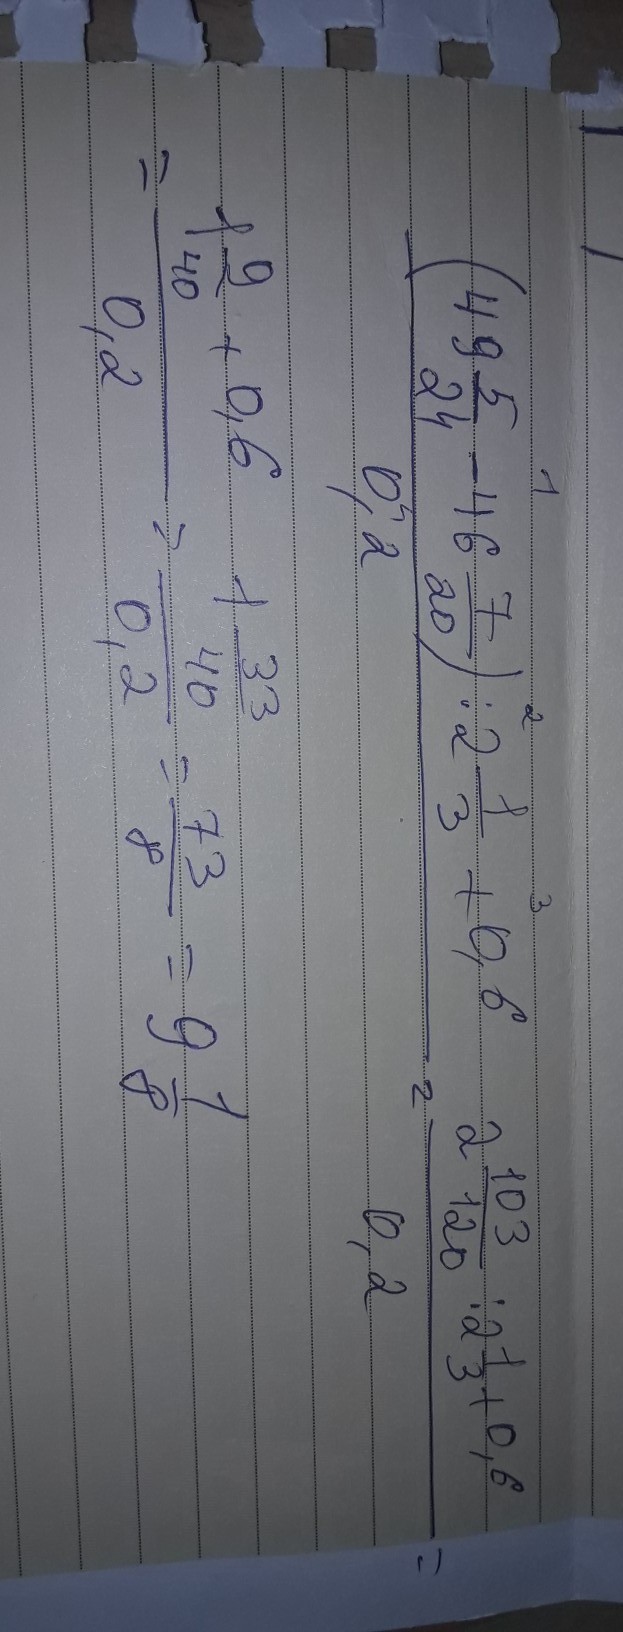 1 2 3
(49 5/24 - 46 7/20) : 2 1/3 + 0,6 / 0,2 = 2 103/120 : 2 1/3 + 0,6 / 0,2 =
= 1 9/40 + 0,6 / 0,2 = 1 33/40 / 0,2 = 73/8 = 9 1/8